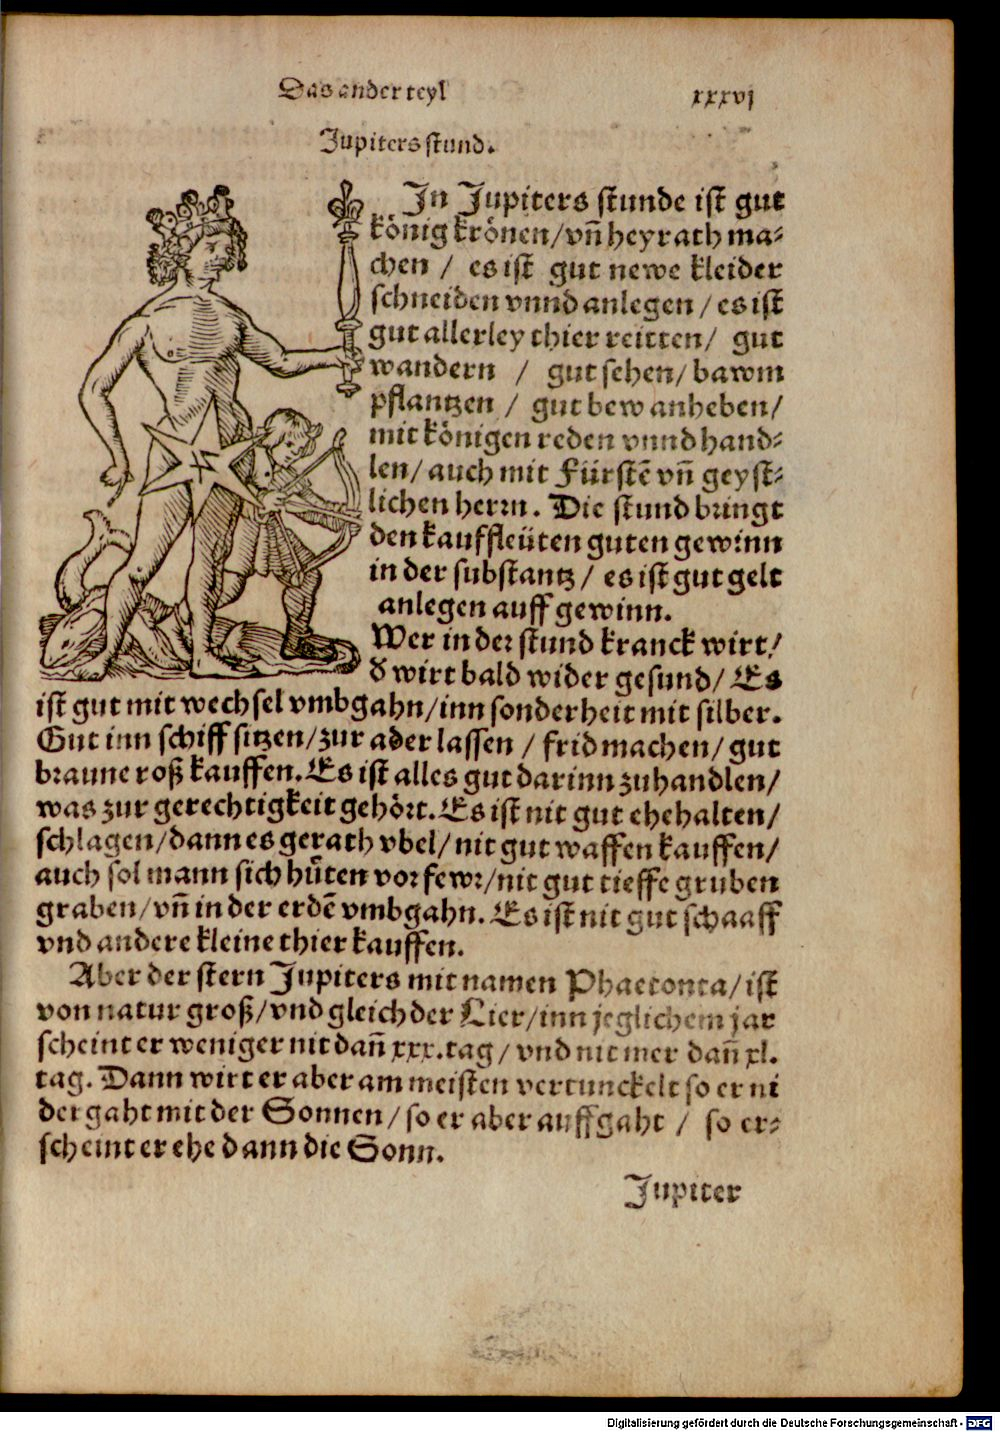 Das ander teyl xxxvj
Jupiters stund.
In Jupiters stunde ist gut
könig krönen/vñ heyrath ma-
chen / es ist gut newe kleider
schneiden vnnd anlegen / es ist
gut allerley thier reitten/ gut
wandern / gut sehen/ bawm
pflantzen / gut bew anheben/
mit königen reden vnnd hand-
len/ auch mit Fürstē vñ geyst-
lichen herrn. Die stund bringt
den kauffleüten guten gewinn
in der substantz / es ist gut gelt
anlegen auff gewinn.
Wer in der stund kranck wirt/
d wirt bald wider gesund/ Es
ist gut mit wechsel vmbgahn/inn sonderheit mit silber.
Gut inn schiff sitzen/zur ader lassen / frid machen/ gut
braune roß kauffen. Es ist alles gut darinn zuhandlen/
was zur gerechtigkeit gehört. Es ist nit gut ehehalten/
schlagen/dann es gerath vbel/ nit gut waffen kauffen/
auch sol mann sich hüten vor fewr/nit gut tieffe gruben
graben/vñ in der erdē vmbgahn. Es ist nit gut schaaff
vnd andere kleine thier kauffen.
Aber der stern Jupiters mit namen Phaetonta/ist
von natur groß/vnd gleich der Lier/inn jeglichem jar
scheint er weniger nit dañ xxx.tag/ vnd nit mer dañ xl.
tag. Dann wirt er aber am meisten vertunckelt so er ni
der gaht mit der Sonnen/ so er aber auffgaht / so er-
scheint er ehe dann die Sonn.
Jupiter
Digitalisierung gefördert durch die Deutsche Forschungsgemeinschaft - DFG